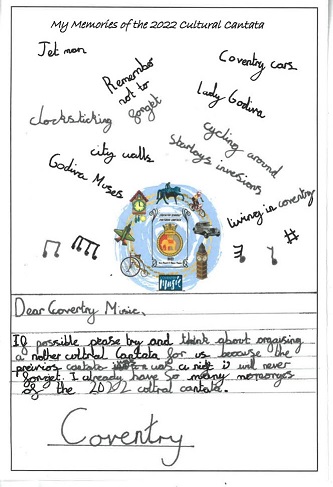 My Memories of the 2022 Cultural Cantata
Jet man
Coventry cars
Remember
not to
forget
Lady Godiva
clocksticking
cycling around
Starleys invesions
city walls
Godiva Muses
living in coventry
music
Dear Coventry Music,
If possible please try and think about organising
a nother cultral Cantata for us because the
previos cantata was
forget. I already have so many
of the 2022 coltral cantata.
Coventry